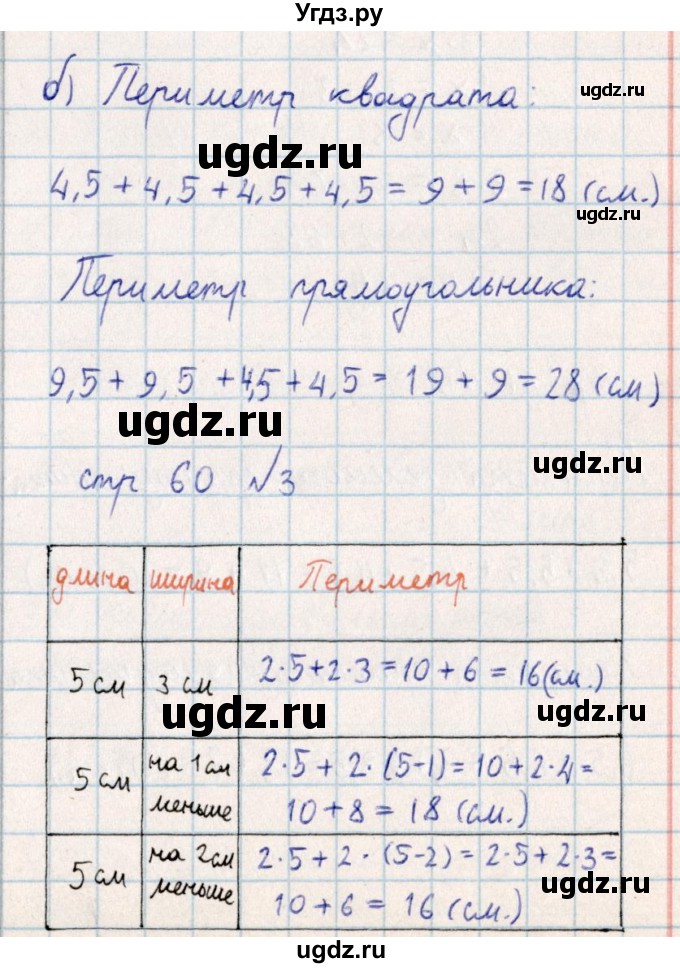 Угдз.ру
б) Периметр квадрата:
ugdz.ru
ugdz.ru
4,5 + 4,5 + 4,5 + 4,5 = 9 + 9 = 18 (см.)
ugdz.ru
Периметр прямоугольника:
9,5 + 9,5 + 4,5 + 4,5 = 19 + 9 = 28 (см)
ugdz.ru
стр 60 №3
ugdz.ru
длина ширина Периметр
5 см 3 см 2·5+2·3 = 10 + 6 = 16(см.)
ugdz.ru
ugdz.ru
5 см на 1 см меньше 2·5 + 2·(5-1) = 10 + 2·4 =
10 + 8 = 18 (см.)
5 см на 2 см меньше 2·5 + 2·(5-2) = 2·5 + 2·3 =
ugdz.ru
10 + 6 = 16 (см.)
ugdz.ru